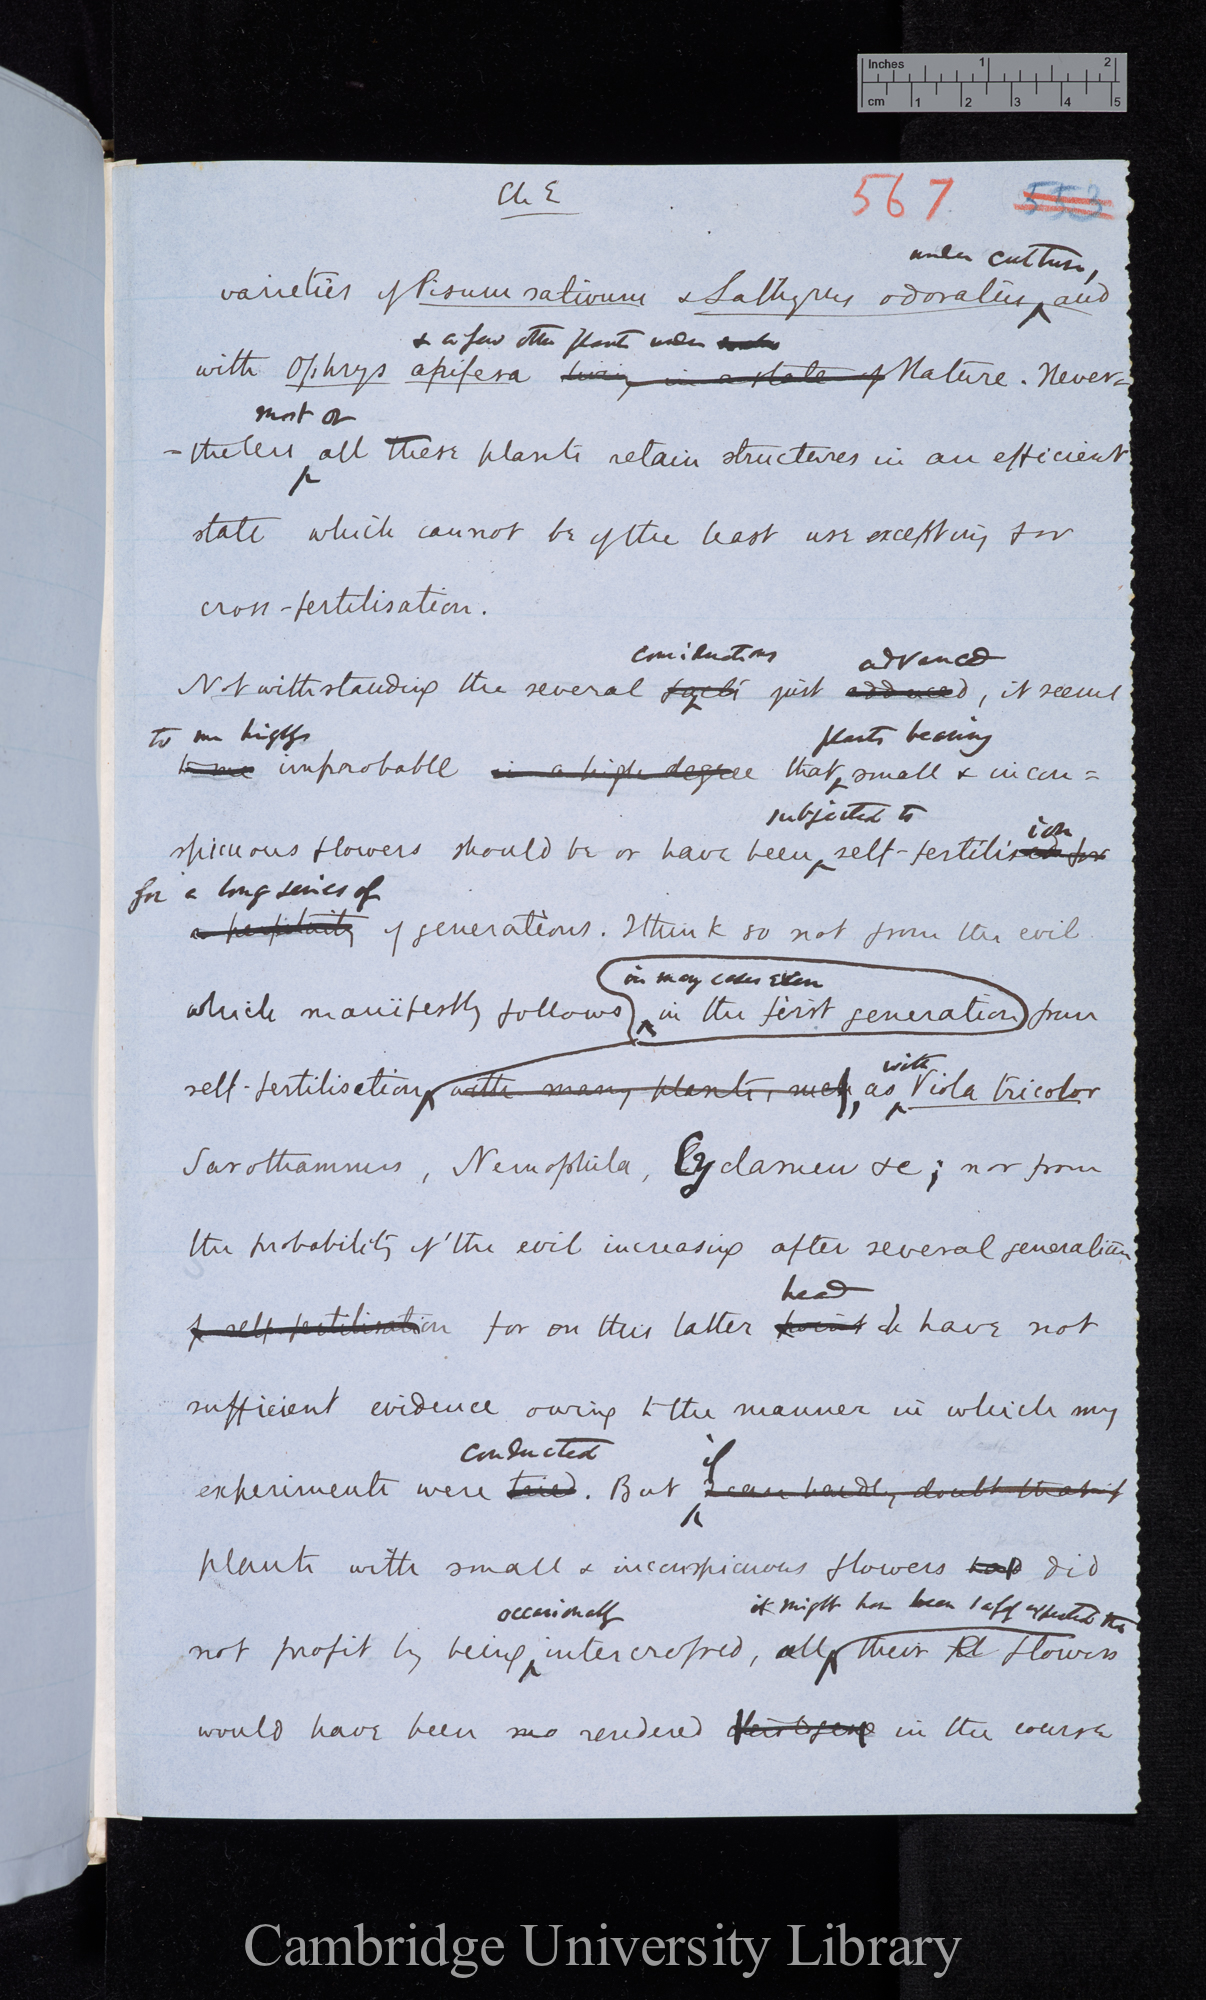 Inches 1 2
cm 1 2 3 4 5
Ch E 567 553
under culture,
varieties of Pisum sativum & Lathyrus odoratus and
& a few other plants under
with Ophrys apifera living in a state of Nature. Never=
most or
=theless all these plants retain structures in an efficient
state which cannot be of the least use excepting for
cross-fertilisation.
considerations advanced
Notwithstanding the several facts just adduced, it seems
to me highly plants bearing
to me improbable in a high degree that small & incon=
subjected to ion
spicuous flowers should be or have been self-fertilised for
for a long series of
a perpetuity of generations. I think so not from the evil
in many cases even
which manifestly follows in the first generation from
with
self-fertilisation with many plants, such, as Viola tricolor
Sarothamnus, Nemophila, Cyclamen &c; nor from
the probability of the evil increasing after several generations
head
of self-fertilisation for on this latter point I have not
sufficient evidence owing to the manner in which my
conducted if
experiments were tried. But I can hardly doubt that if
plants with small & inconspicuous flowers had did
occasionally it might have been safely expected that
not profit by being intercrossed, all their flowers
would have been rendered cleistogene in the course
Cambridge University Library